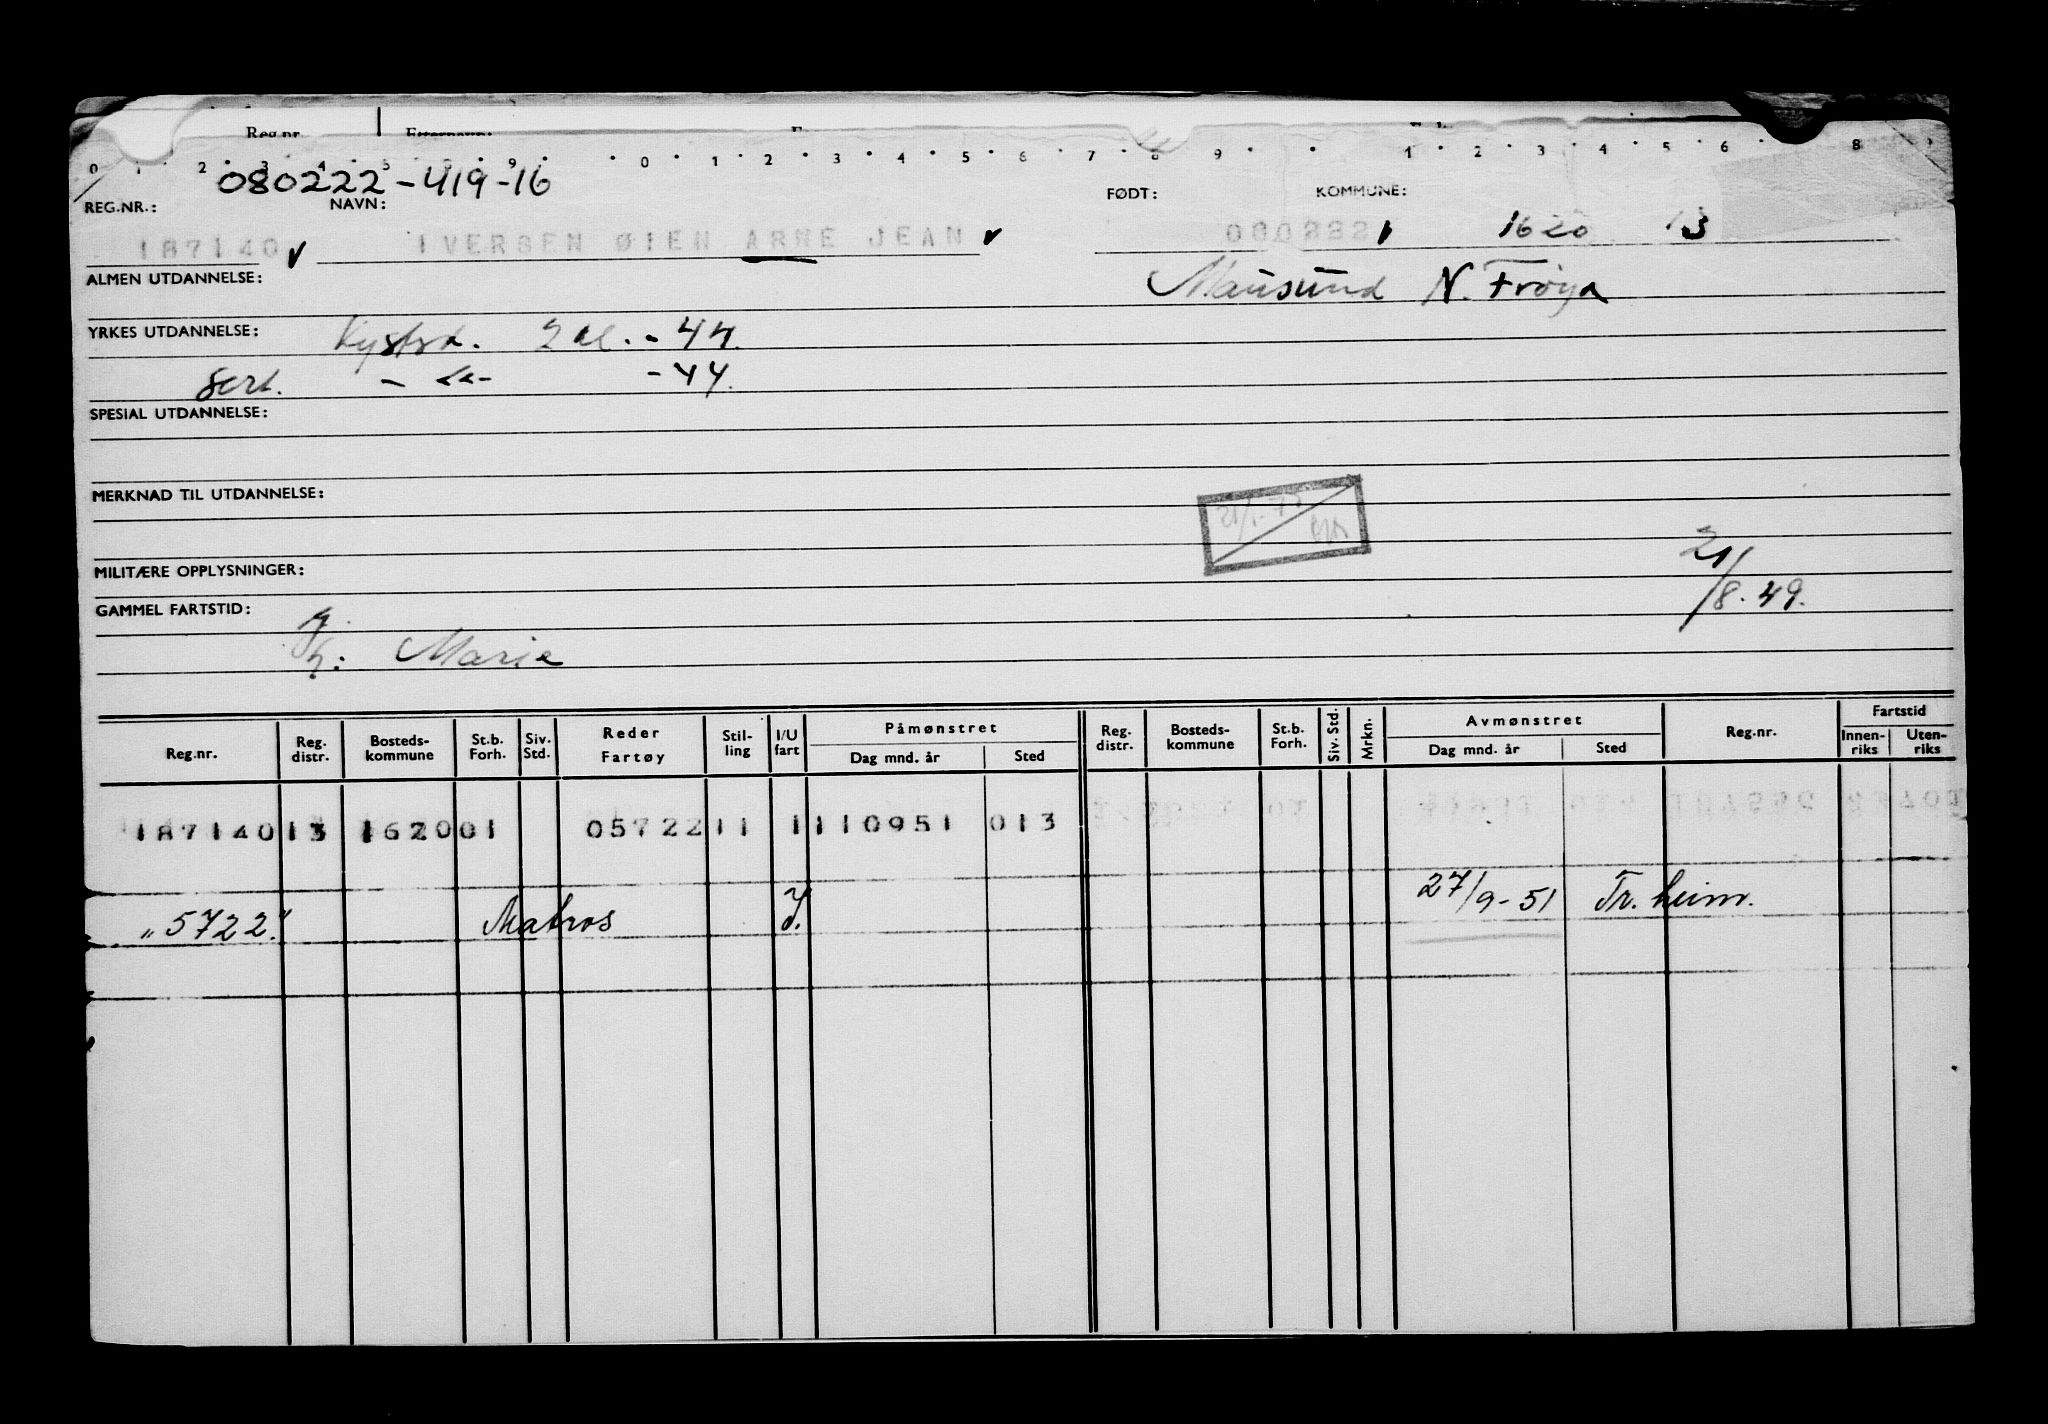 Reg.nr. Etternavn:
0 1 2 3 4 5 8 9 0 1 2 3 4 5 6 7 8 9 1 2 3 4 5 6 8
080222-419-16
REG.NR.: NAVN: FØDT: KOMMUNE:
187140 IVERSEN ØIEN ARNE JEAN 080222 1 1620 13
ALMEN UTDANNELSE: Mausund N. Frøya
YRKES UTDANNELSE: Kystsk. 2 kl. - 44.
Sert. - «- - 44.
SPESIAL UTDANNELSE:
MERKNAD TIL UTDANNELSE:
21/8.49.
MILITÆRE OPPLYSNINGER:
GAMMEL FARTSTID:
Marie
Reg.nr. Reg. distr. Bosteds-kommune St.b. Forh. Siv. Std. Reder Fartøy Stil-ling I/U fart Påmønstret Dag mnd. år Sted Reg. distr. Bosteds-kommune St.b. Forh. Siv. Std. Mrkn. Avmønstret Dag mnd. år Sted Reg.nr. Fartstid Innen-riks Uten-riks
187140 13 1620 01 05722 11 1 110951 013
"5722" Matros I. 27/9-51 Tr.heim.